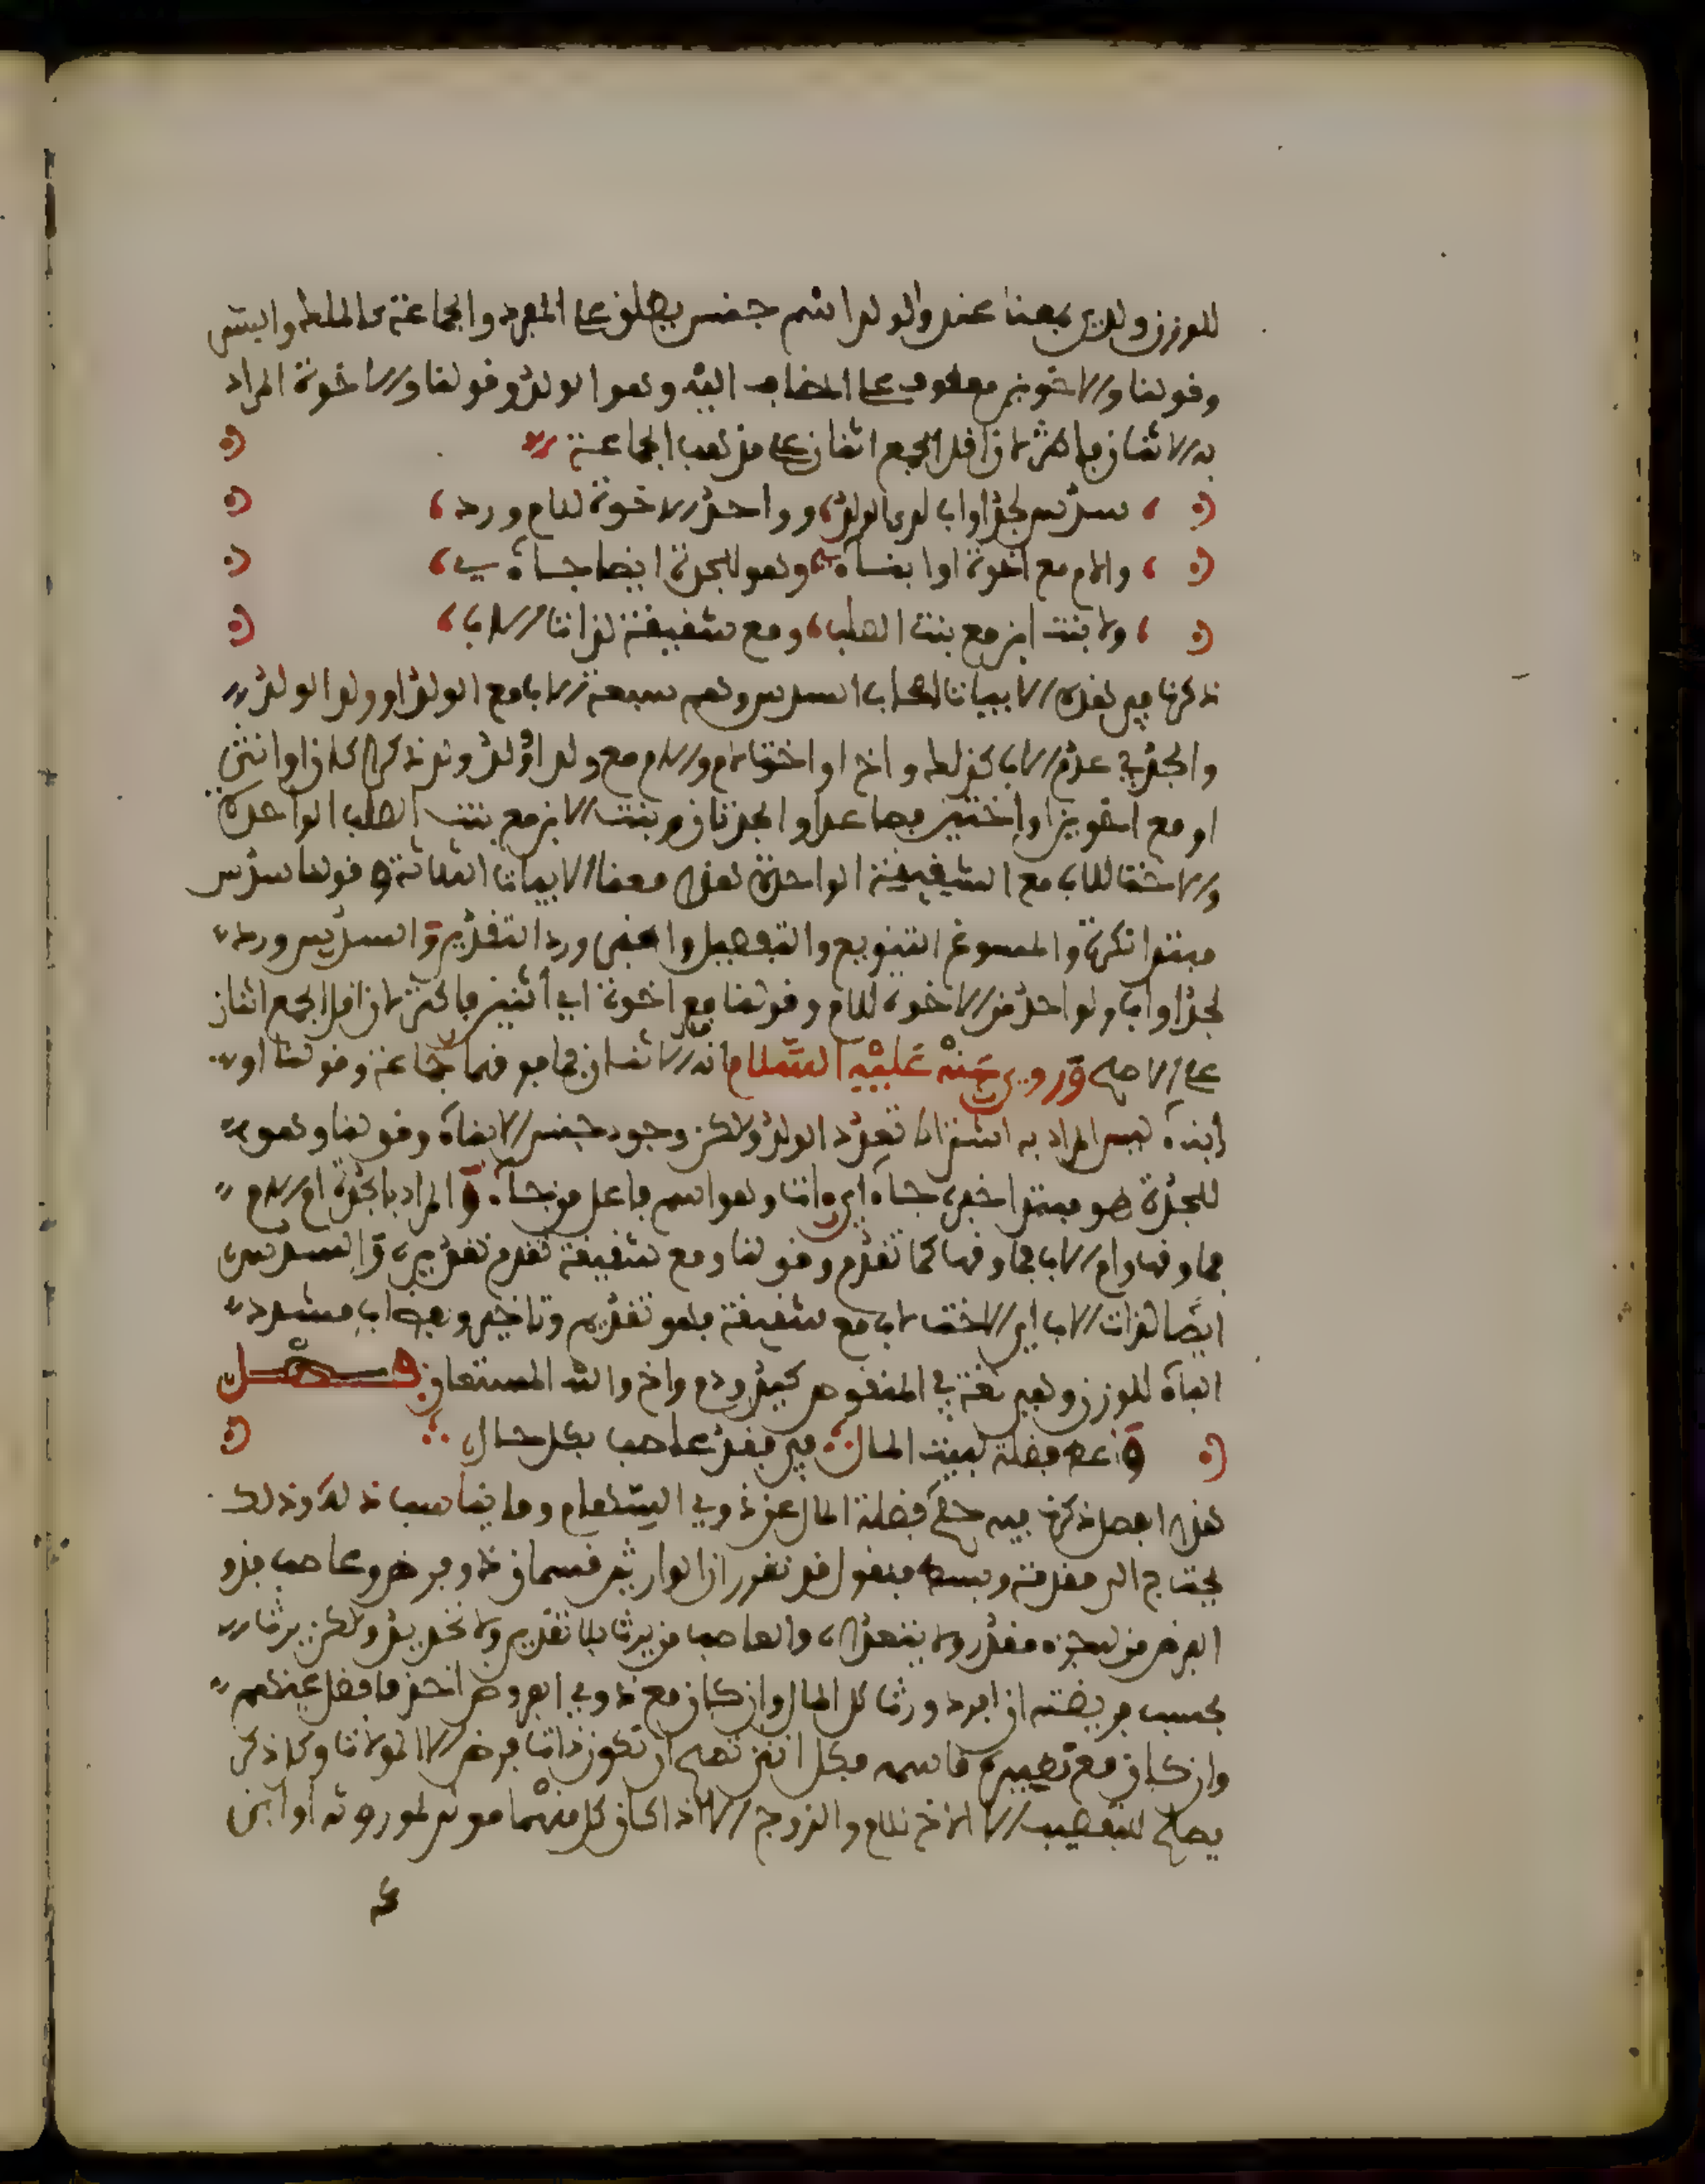 للوزن ولدى بمعنا عند والولد اسم جنس يطلق على المفرد والجماعة كالملك والبشر
وقولنا والاخوة معطوف على المضاف اليه وهو الولد وقولنا والاخوة المراد
به الاثنان فاكثر لان اقل الجمع اثنان على مذهب الجماعة
سدس لجد او اب لدى الولد، وواحد الاخوة للام ورد،
والام مع اخوة او ابناء وهو للجدة ايضا جاء
ولابنت ابن مع بنت الصلب، ومع شقيقة لذات الاب،
ذكرنا في هذه الابيات اصحاب السدس وهم سبعة الاب مع الولد او ولد الولد
والجد في عدم الاب كذلك واخ او اخت لام والام مع ولد او ولد ولد ذكرا كان او انثى
او مع اخوين او اختين فصاعدا والجدتان وبنت الابن مع بنت الصلب الواحدة
والاخت للاب مع الشقيقة الواحدة هذا معنا الابيات الثلاثة وقولنا سدس
مبتدا نكرة والمسوغ التنويع والتفصيل والخبر ورد التقدير والسدس ورد
لجد او اب ولواحد من الاخوة للام وقولنا مع اخوة اي اثنين فاكثر لان اقل الجمع اثنان
على الاصح وروي عنه عليه السلام انه قال الاثنان فما فوقهما جماعة وقولنا او
ابناء ليس المراد به اشتراط تعدد الولد ولاكن وجود جنس الابناء وقولنا وهو
للجدة هو مبتدا خبره جاء اي ات وهو اسم فاعل من جاء والمراد بالجدة ام الام
فما وفها وام الاب فما وفها كما تقدم وقولنا ومع شقيقة تقدم تقديره والسدس
ايضا لذات الاب اي الاخت لاب مع شقيقة فهو تقديم وتاخير ولفظ اب مشدد
الباء للوزن وهي لغة في المنقوص كيد ودم واخ والله المستعان فصل
واعط فضلة لبيت المال في فقد عاصب بكل حال
هذا الفصل ذكرنا فيه حكم فضلة المال عن ذوي السهام وما يناسب ذلك وذلك
يحتاج الى مقدمة وبسط فنقول قد تقرر ان الوارثين قسمان ذو فرض وعاصب فذو
الفرض من له جزء مقدر ولا يتعداه والعاصب من يرث بلا تقدير ولا تحديد ولاكن يرث
بحسب فريضته ان انفرد ورث كل المال وان كان مع ذوي الفروض اخذ ما فضل عنهم
وان كان مع نظيره قاسمه فكل انثى تصح ان تكون ذات فرض الا المولات وكل ذكر
يصلح للتعصيب الا الاخ للام والزوج الا اذا كان كل منهما مولى لموروثه او ابن